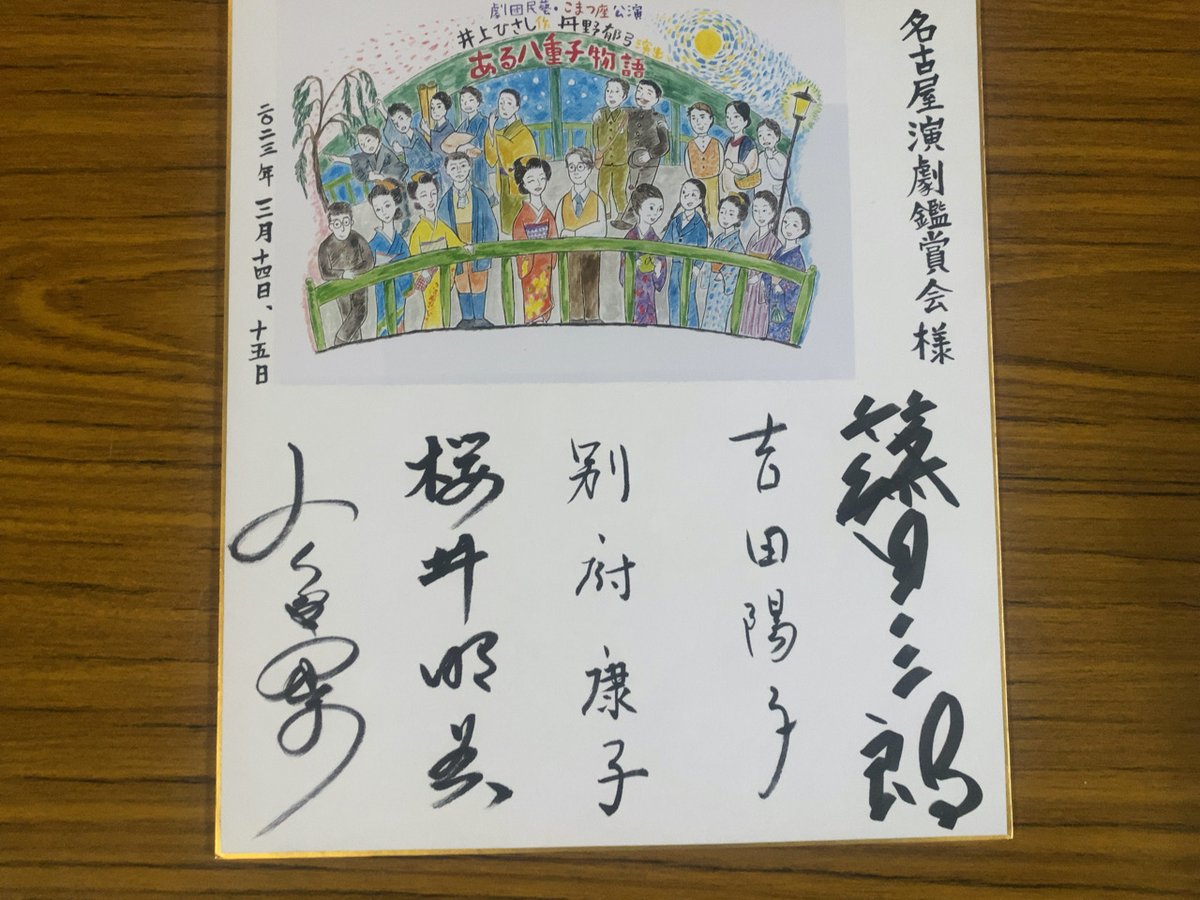 劇団民藝・こまつ座公演
井上ひさし作 丹野郁弓演出
ある八重子物語
名古屋演劇鑑賞会様
二〇二三年 三月十四日、十五日
篠田三郎
吉田陽子
別府康子
桜井明美